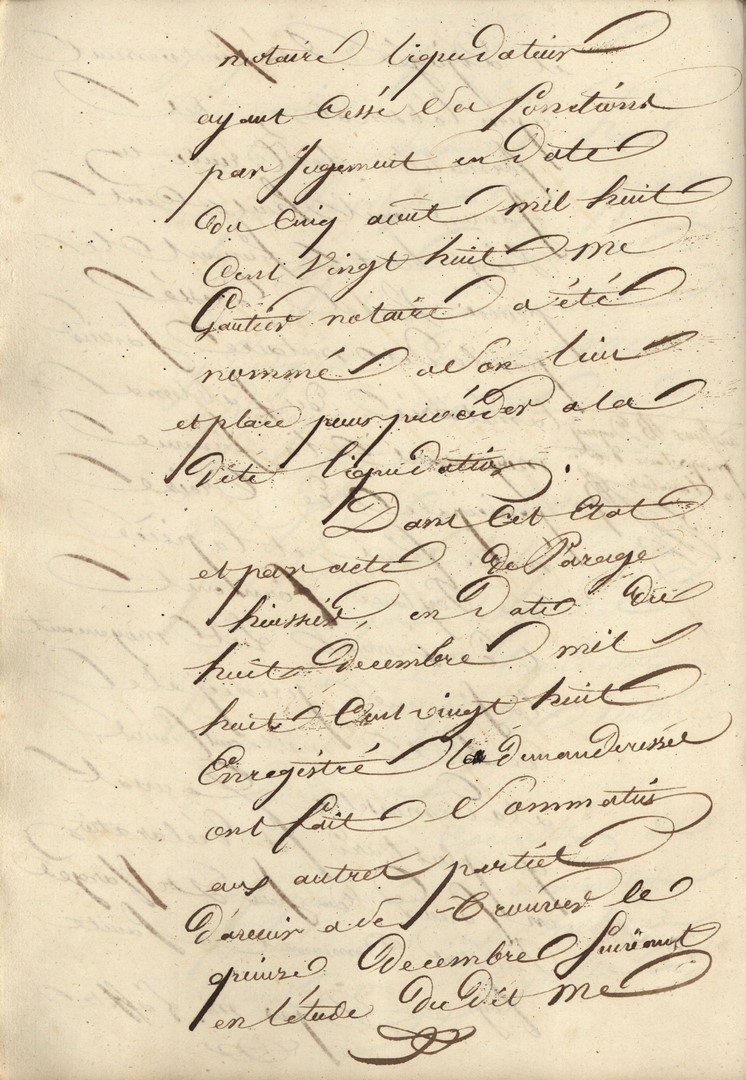 notaire liquidateur
ayant Cessé Ses fonctions
par Jugement en Date
du Cinq aout mil huit
Cent Vingt huit Me
Gautier notaire a été
nommé a Son lieu
et place pour procéder a la
Dite liquidation.
Dans Cet Etat
et par acte de Parage
huissier, en Date du
huit Decembre mil
huit Cent vingt huit
Enregistré les demanderesses
ont fait Sommation
aux autres parties
d'avoir a se trouver le
quinze Decembre Suivant
en l'étude Du Dit Me